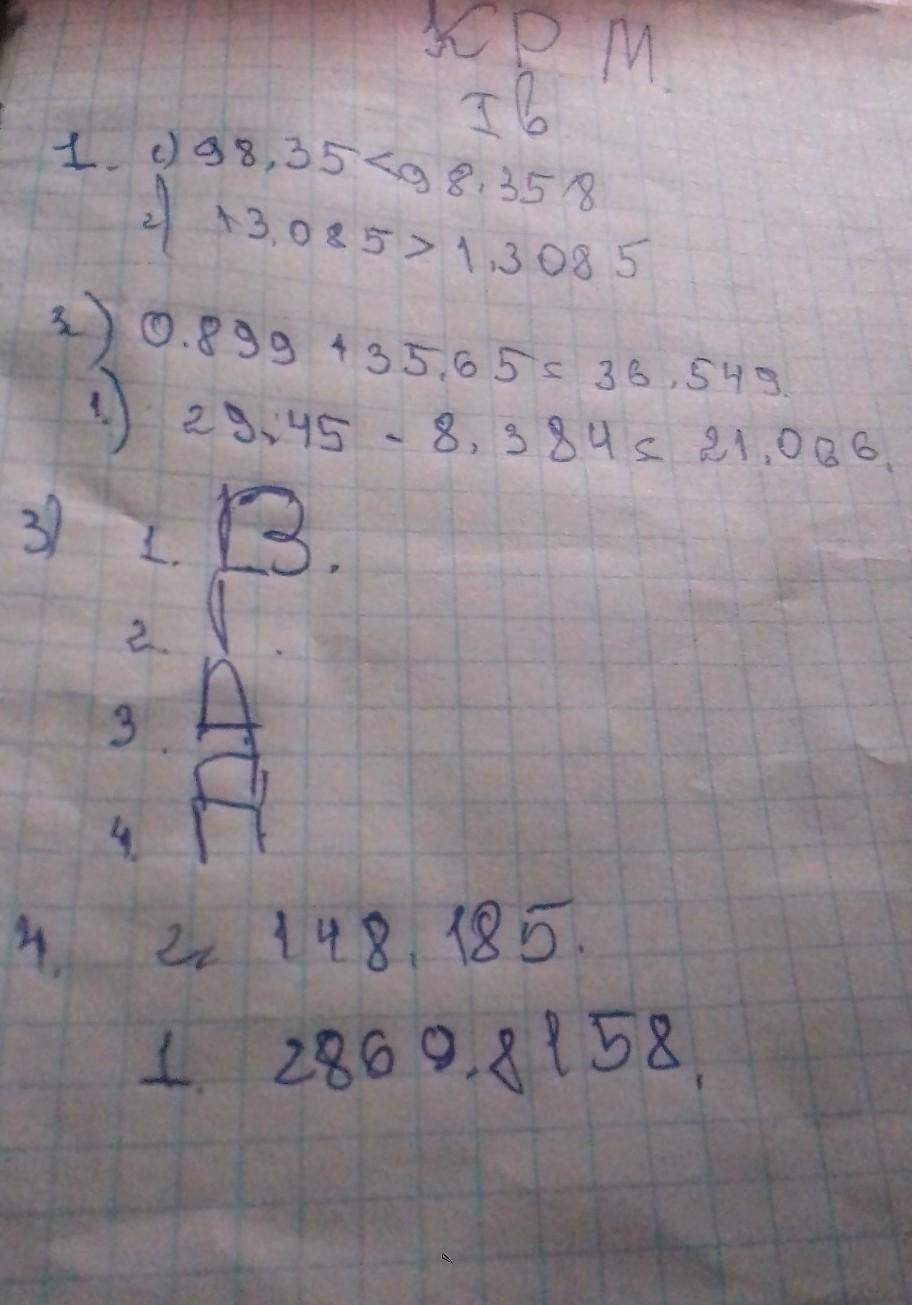 КРМ
Iв
1. 1) 98,35 < 98,358
2) 13,085 > 1,3085
2) 0.899 + 35,65 = 36,549.
1.) 29,45 - 8,384 = 21,066.
3) 1. В.
2.
3. А
4. Д
4. 2. 148,185.
1. 2860,8158,